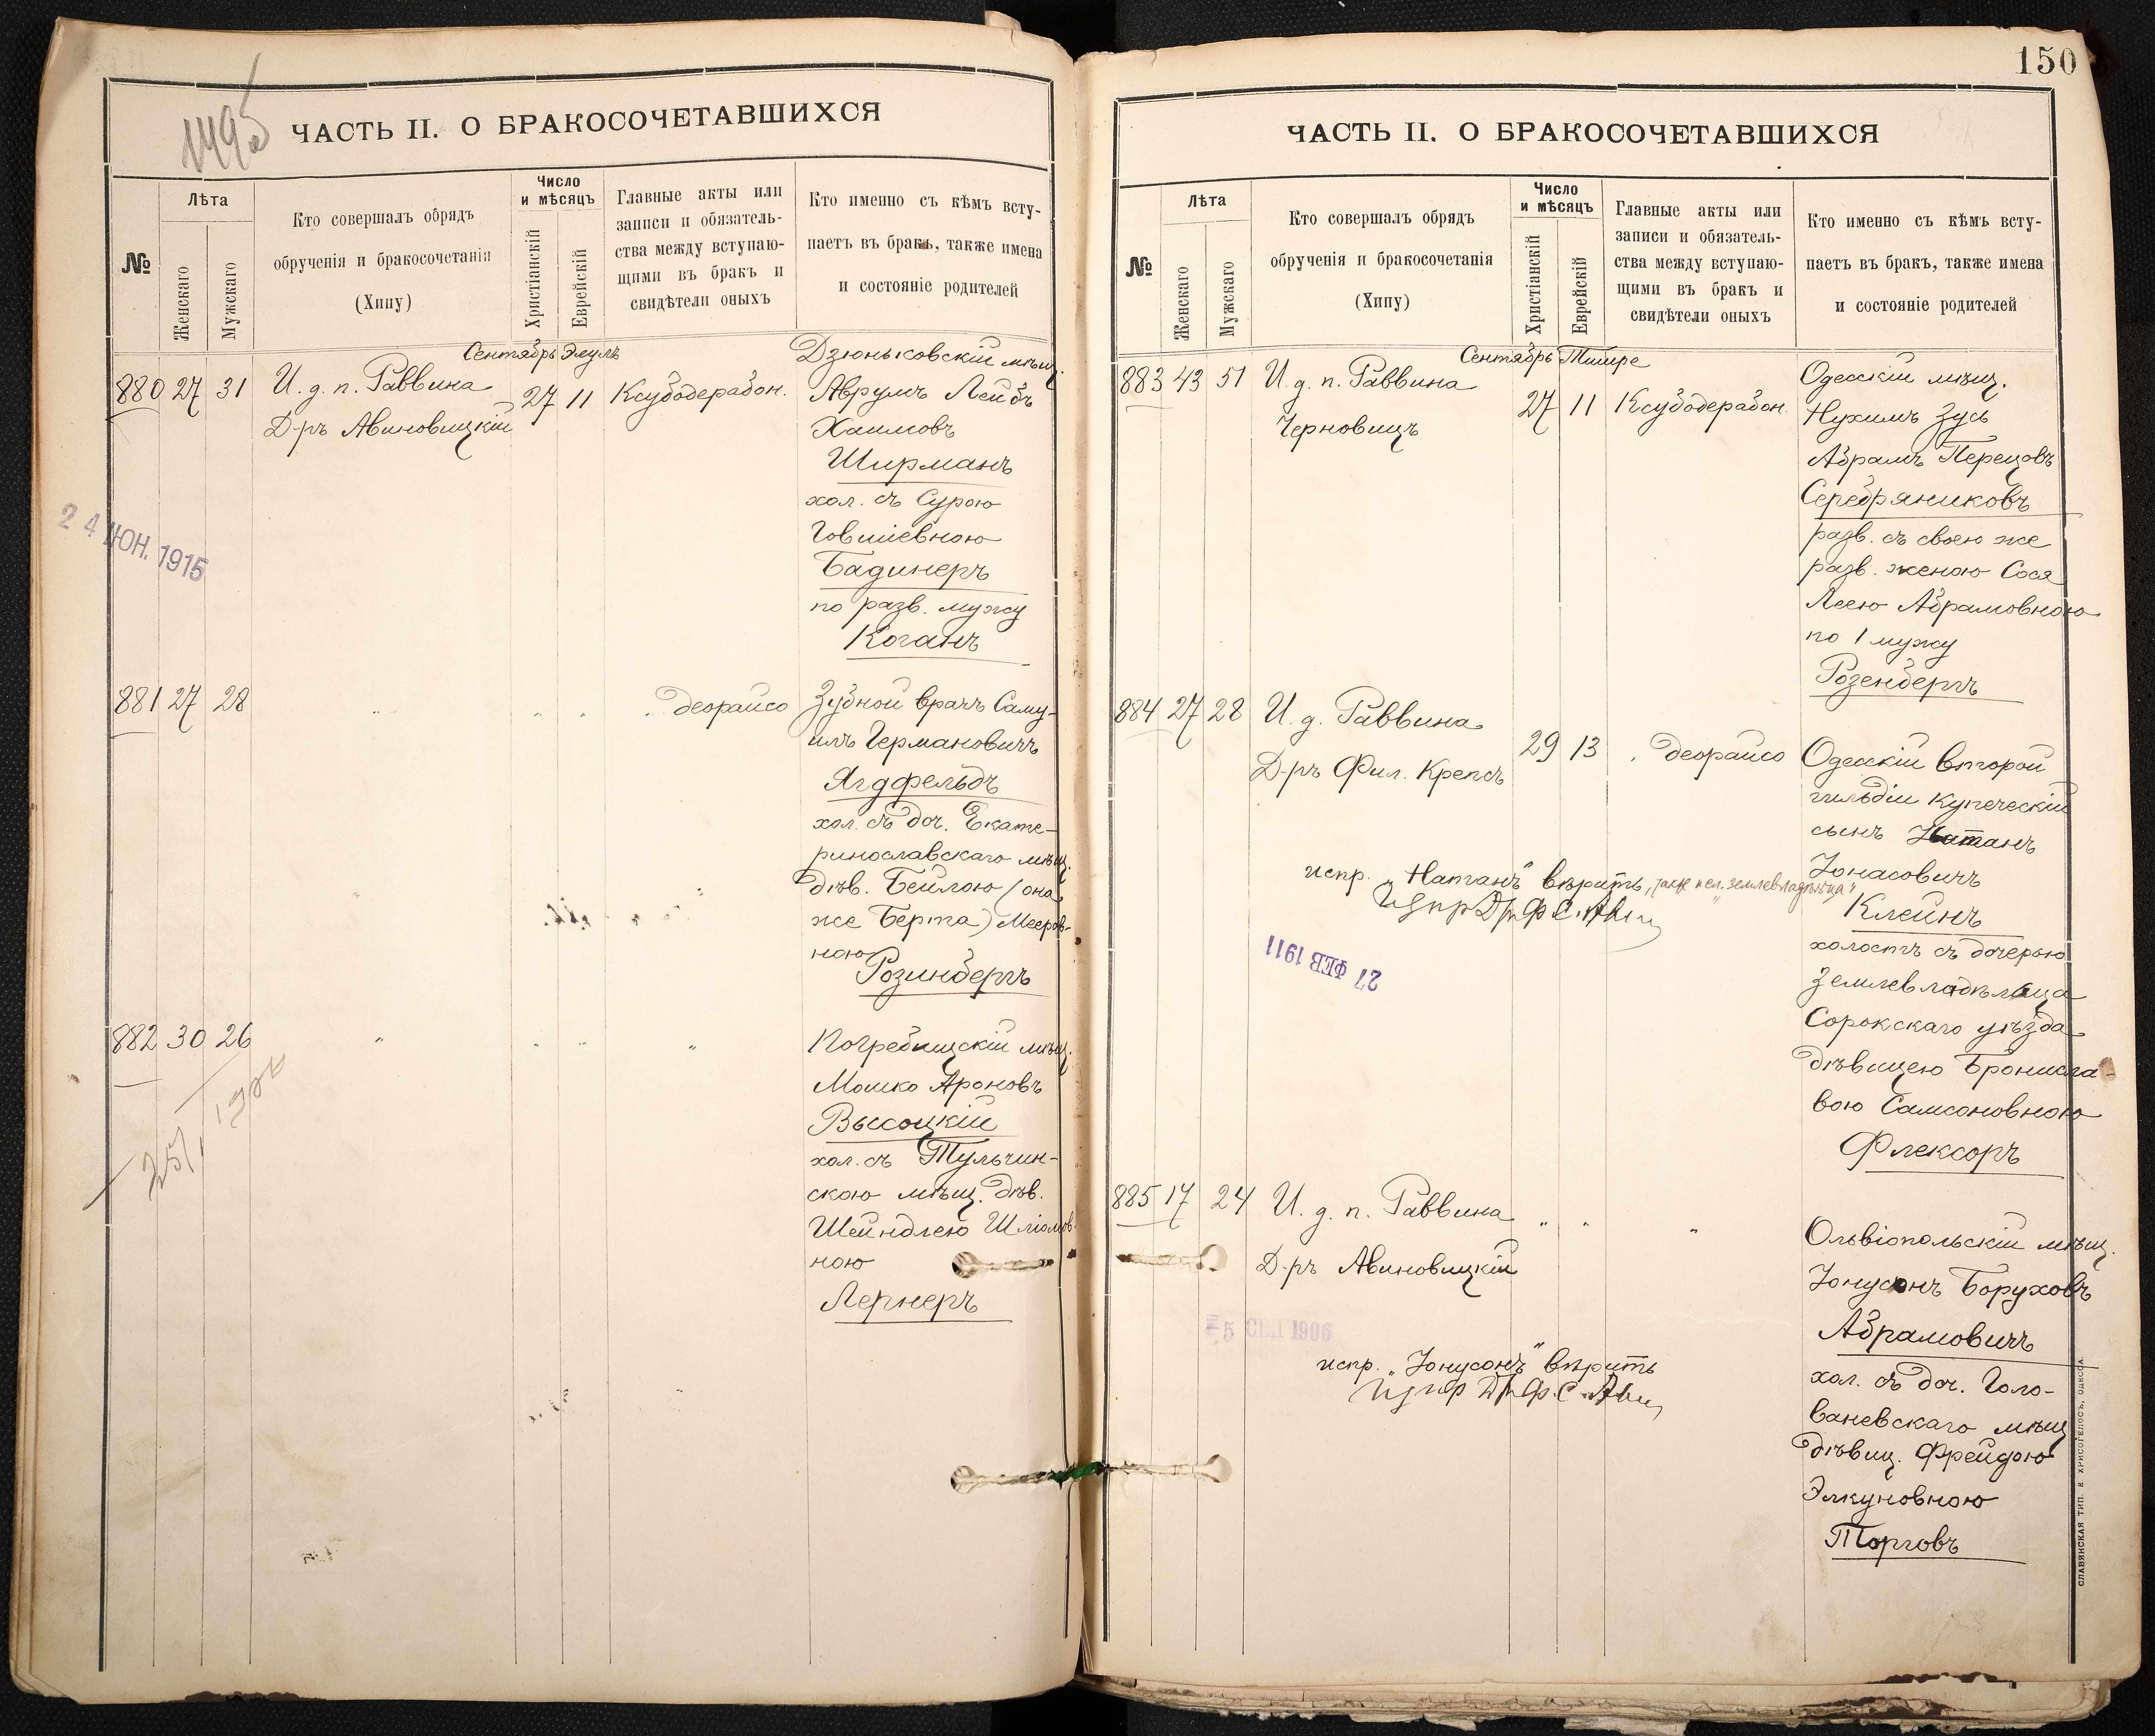 149 об
ЧАСТЬ II. О БРАКОСОЧЕТАВШИХСЯ
№
Лѣта
Женскаго
Мужскаго
Кто совершалъ обрядъ
обрученія и бракосочетанія
(Хипу)
Число
и мѣсяцъ
Христіанскій
Еврейскій
Главные акты или
записи и обязатель-
ства между вступаю-
щими въ бракъ и
свидѣтели оныхъ
Кто именно съ кѣмъ всту-
паетъ въ бракъ, также имена
и состояніе родителей
Сентябрь Элулъ
880 27 31 И. д. п. Раввина 27 11 Ксубодерабон.
Д-ръ Авиновицкій
Дзюньковскій мѣщ.
Аврумъ Лейбъ
Хаимовъ
Ширманъ
хол. съ Сурою
Говшіевною
Бадинеръ
по разв. мужу
Коганъ
24 ИЮН. 1915
881 27 28 " " " " деорайсо
Зубной врачъ Саму-
илъ Германовичъ
Ягдфельдъ
хол. съ доч. Екате-
ринославскаго мѣщ.
дѣв. Бейлою (она
же Берта) Мееров-
ною
Розинбергъ
882 30 26 " " " "
Погребищскій мѣщ.
Мошко Ароновъ
Высоцкій
хол. съ Тульчин-
скою мѣщ. дѣв.
Шейндлею Шліомов-
ною
Лернеръ
150
ЧАСТЬ II. О БРАКОСОЧЕТАВШИХСЯ
№
Лѣта
Женскаго
Мужскаго
Кто совершалъ обрядъ
обрученія и бракосочетанія
(Хипу)
Число
и мѣсяцъ
Христіанскій
Еврейскій
Главные акты или
записи и обязатель-
ства между вступаю-
щими въ бракъ и
свидѣтели оныхъ
Кто именно съ кѣмъ всту-
паетъ въ бракъ, также имена
и состояніе родителей
Сентябрь Тишре
883 43 51 И. д. п. Раввина 27 11 Ксубодерабон.
Черновицъ
Одесскій мѣщ.
Нухимъ Зусь
Абрамъ Перецовъ
Серебряниковъ
разв. съ своею же
разв. женою Сося
Леею Абрамовною
по 1 мужу
Розенбергъ
884 27 28 И. д. Раввина 29 13 " деорайсо
Д-ръ Фил. Крепсъ
Одесскій второй
гильдіи купеческій
сынъ Натанъ
Іонасовичъ
Клейнъ
холостъ съ дочерью
землевладѣльца
Сорокскаго уѣзда
дѣвицею Бронисла-
вою Самсоновною
Флексоръ
испр. "Натанъ" вѣрить, "землевладѣльца"
27 ФЕВ 1911
885 17 24 И. д. п. Раввина " " "
Д-ръ Авиновицкій
Ольвіопольскій мѣщ.
Іонусонъ Боруховъ
Абрамовичъ
хол. съ доч. Голо-
ваневскаго мѣщ
дѣвиц. Фрейдою
Элкуновною
Торговъ
5 СЕН 1906
испр. "Іонусонъ" вѣрить
СЛАВЯНСКАЯ ТИП. Е. ХРИСОГЕЛОСЪ, ОДЕССА.